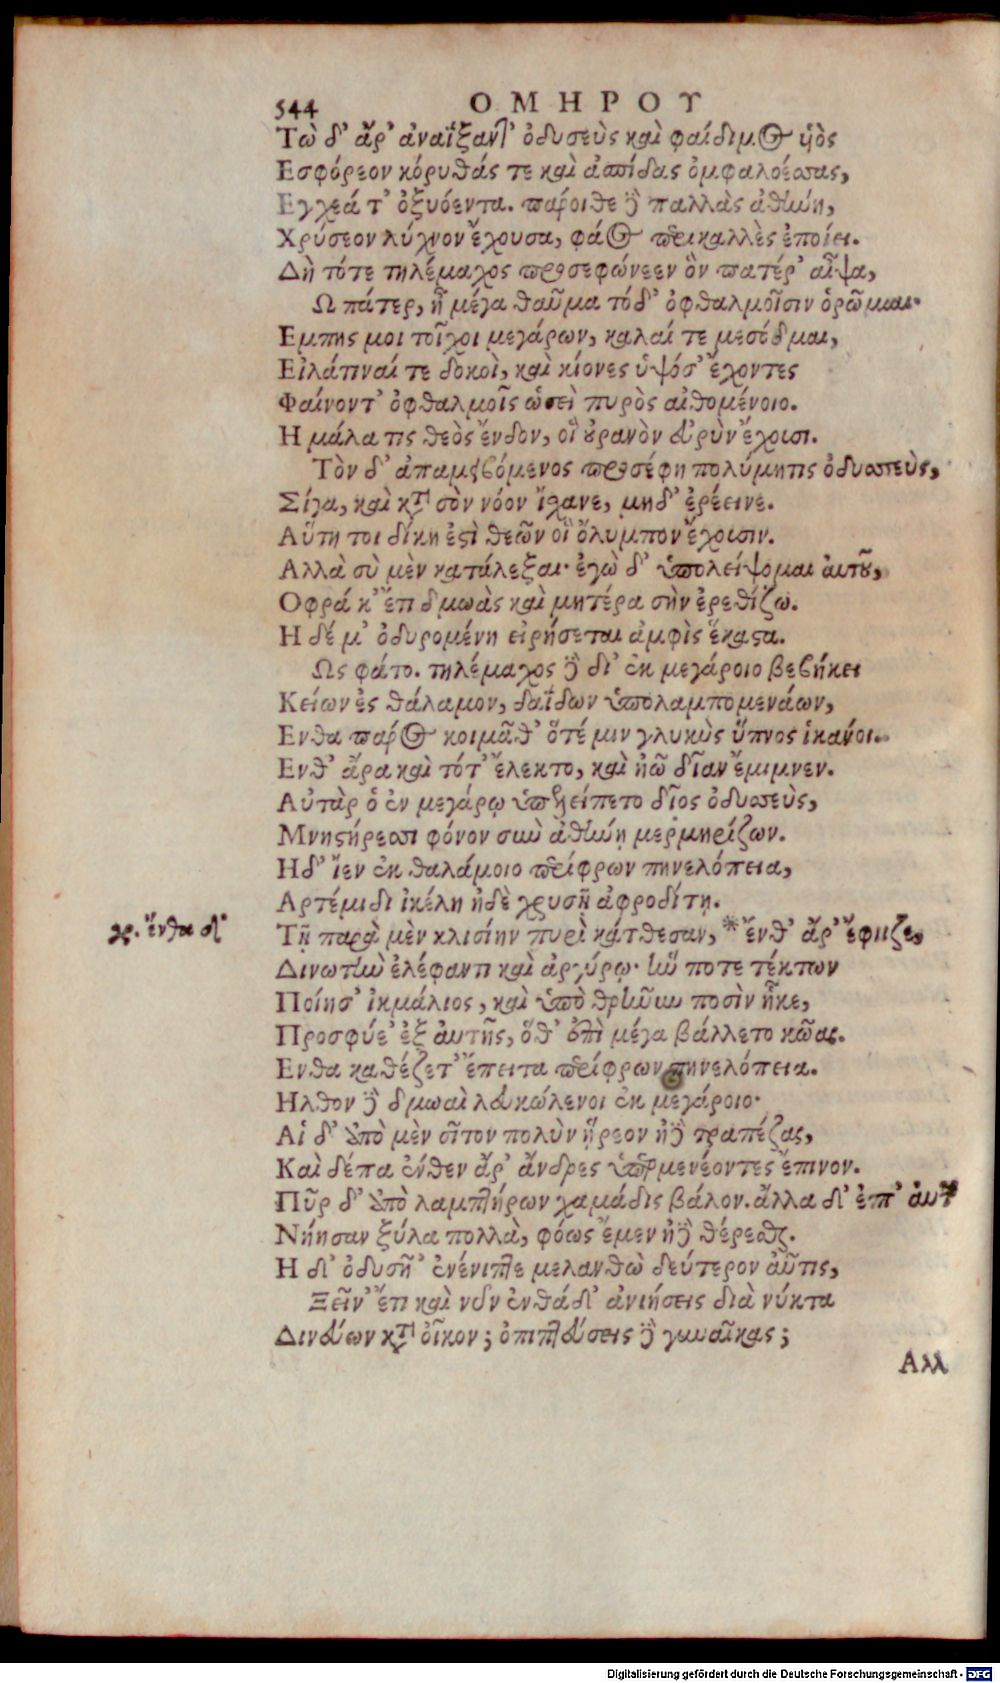 544 ΟΜΗΡΟΥ
Τὼ δ' ἄρ' ἀναΐξαντ' ὀδυσεὺς καὶ φαίδιμος υἱὸς
Εσφόρεον κόρυθάς τε καὶ ἀσπίδας ὀμφαλοέσσας,
Εγχεά τ' ὀξυόεντα. πάροιθε δὲ παλλὰς ἀθήνη,
Χρύσεον λύχνον ἔχουσα, φάος περικαλλὲς ἐποίει.
Δὴ τότε τηλέμαχος προσεφώνεεν ὃν πατέρ' αἶψα,
Ω πάτερ, ἦ μέγα θαῦμα τόδ' ὀφθαλμοῖσιν ὁρῶμαι·
Εμπης μοι τοῖχοι μεγάρων, καλαί τε μεσόδμαι,
Εἰλάτιναί τε δοκοὶ, καὶ κίονες ὑψόσ' ἔχοντες
Φαίνοντ' ὀφθαλμοῖς ὡσεὶ πυρὸς αἰθομένοιο.
Η μάλα τις θεὸς ἔνδον, οἳ οὐρανὸν εὐρὺν ἔχουσι.
Τὸν δ' ἀπαμειβόμενος προσέφη πολύμητις ὀδυσσεὺς,
Σίγα, καὶ κατὰ σὸν νόον ἴχανε, μηδ' ἐρέεινε.
Αὕτη τοι δίκη ἐστὶ θεῶν οἳ ὄλυμπον ἔχουσιν.
Αλλὰ σὺ μὲν κατάλεξαι· ἐγὼ δ' ὑπολείψομαι αὐτοῦ,
Οφρά κ' ἔτι δμωὰς καὶ μητέρα σὴν ἐρεθίζω.
Η δέ μ' ὀδυρομένη εἰρήσεται ἀμφὶς ἕκαστα.
Ως φάτο. τηλέμαχος δὲ δι' ἐκ μεγάροιο βεβήκει
Κείων ἐς θάλαμον, δαΐδων ὑπολαμπομενάων,
Ενθα πάρος κοιμᾶθ' ὅτέ μιν γλυκὺς ὕπνος ἱκάνοι.
Ενθ' ἄρα καὶ τότ' ἔλεκτο, καὶ ἠῶ δῖαν ἔμιμνεν.
Αὐτὰρ ὁ ἐν μεγάρῳ ὑπελείπετο δῖος ὀδυσσεὺς,
Μνηστήρεσσι φόνον σὺν ἀθήνῃ μερμηρίζων.
Ηδ' ἴεν ἐκ θαλάμοιο περίφρων πηνελόπεια,
Αρτέμιδι ἰκέλη ἠδὲ χρυσῇ ἀφροδίτῃ.
γρ. ἔνθα δι'
Τῇ παραὶ μὲν κλισίην πυρὶ κάτθεσαν, * ἔνθ' ἄρ' ἔφιιζε,
Δινωτὴν ἐλέφαντι καὶ ἀργύρῳ· ἥν ποτε τέκτων
Ποίησ' ἰκμάλιος, καὶ ὑπὸ θρῆνυν ποσὶν ἧκε,
Προσφύε' ἐξ αὐτῆς, ὅθ' ἐπὶ μέγα βάλλετο κῶας.
Ενθα καθέζετ' ἔπειτα περίφρων πηνελόπεια.
Ηλθον δὲ δμωαὶ λευκώλενοι ἐκ μεγάροιο·
Αἱ δ' ἀπὸ μὲν σῖτον πολὺν ᾕρεον ἠδὲ τραπέζας,
Καὶ δέπα ἔνθεν ἄρ' ἄνδρες ὑπερμενέοντες ἔπινον.
Πῦρ δ' ἀπὸ λαμπτήρων χαμάδις βάλον. ἄλλα δ' ἐπ' αὐτῶν
Νήησαν ξύλα πολλὰ, φόως ἔμεν ἠδὲ θέρεσθαι.
Η δ' ὀδυσῆ' ἐνένιπτε μελανθὼ δεύτερον αὖτις,
Ξεῖν' ἔτι καὶ νῦν ἐνθάδ' ἀνιήσεις διὰ νύκτα
Δινεύων κατὰ οἶκον; ὀπιπτεύσεις δὲ γυναῖκας;
Αλλ
Digitalisierung gefördert durch die Deutsche Forschungsgemeinschaft - DFG